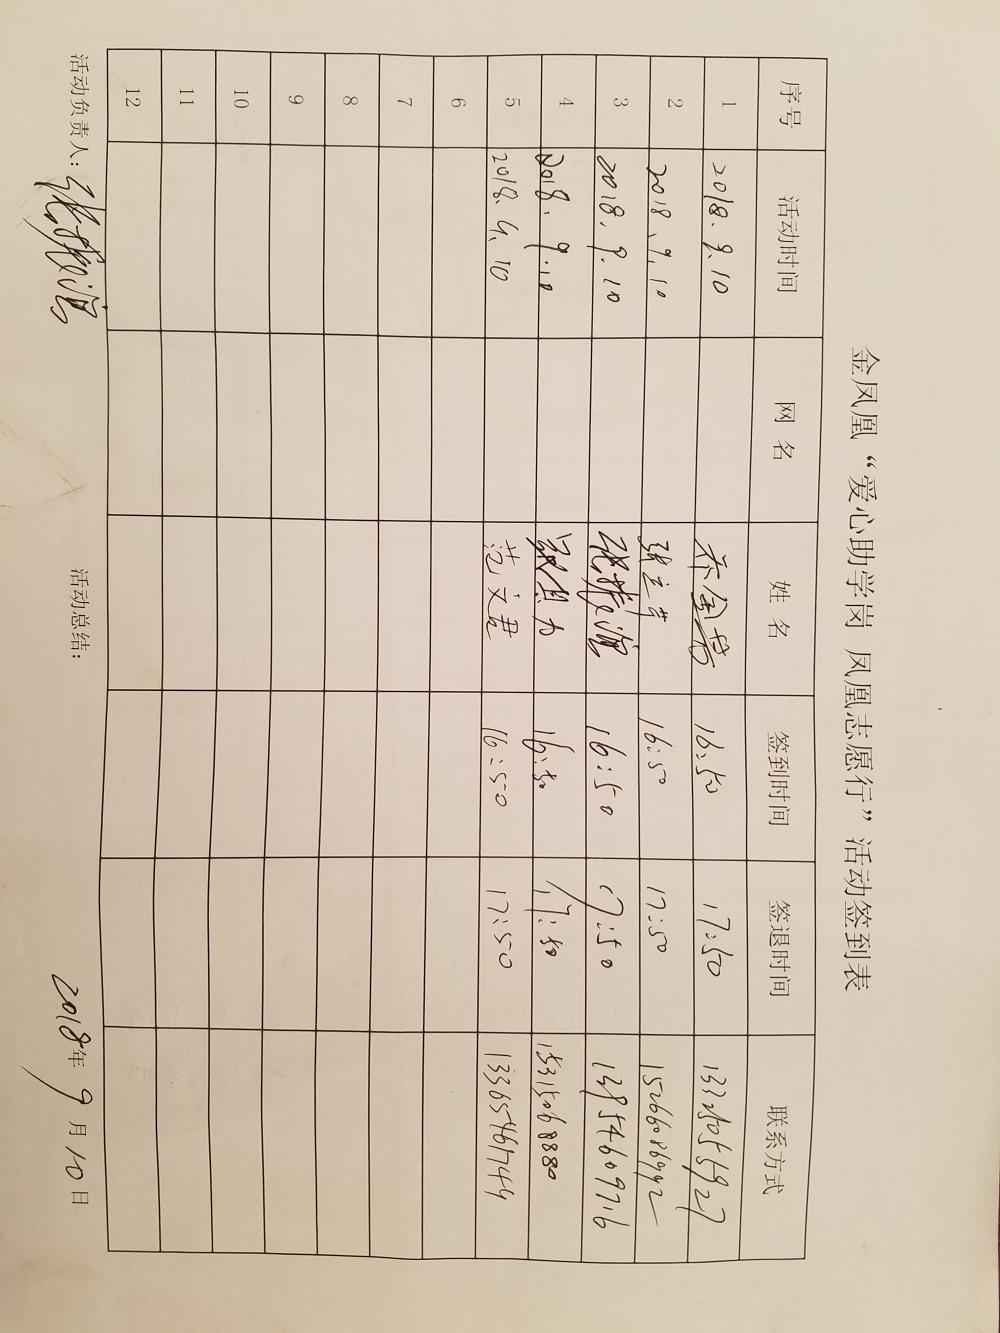 金凤凰“爱心助学岗 凤凰志愿行”活动签到表
序号 活动时间 网 名 姓 名 签到时间 签退时间 联系方式
1 2018.9.10 乔金芳 16:50 17:50
2 2018.9.10 16:50 17:50 15266086992
3 2018.9.10 张振滨 16:50 17:50 13954609716
4 2018.9.10 16:50 17:50 15315068880
5 2018.9.10 范文君 16:50 17:50 13365461744
6
7
8
9
10
11
12
活动负责人：张振滨 活动总结： 2018年9月10日